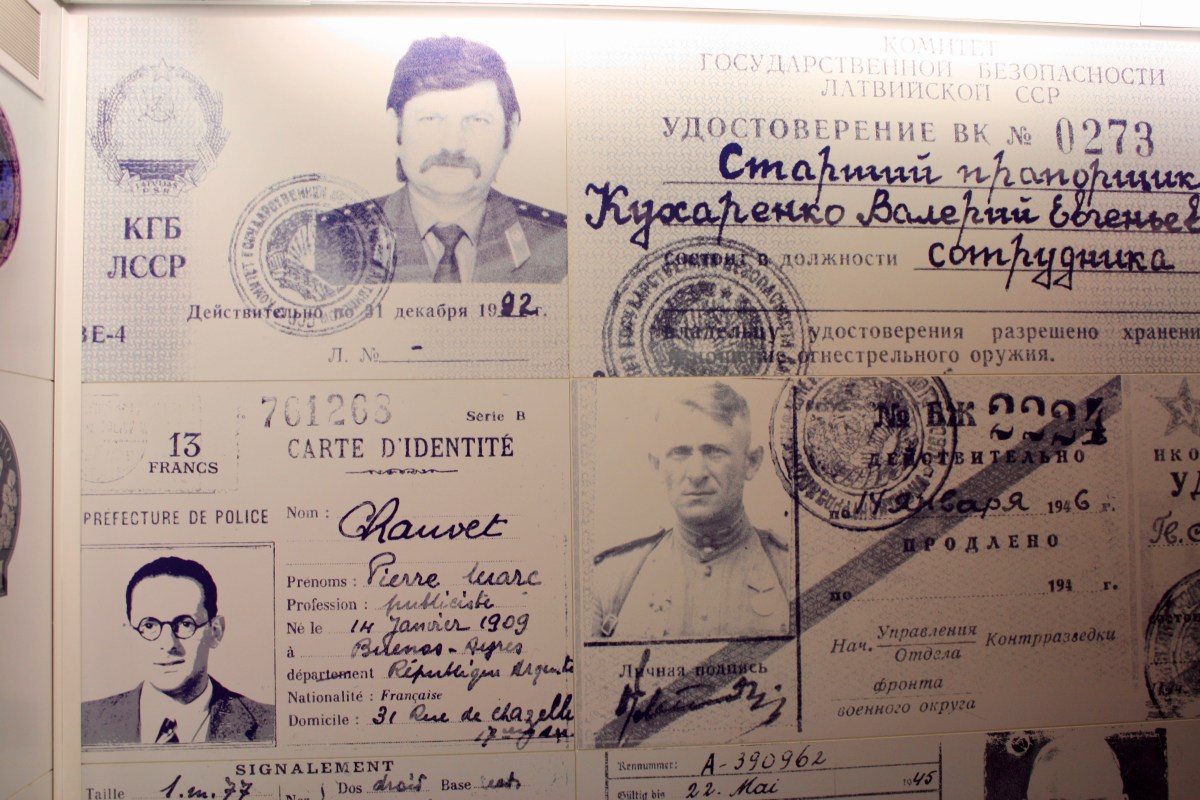 КГБ
ЛССР
Действительно по 31 декабря 1992 г.
ВЕ-4
Л. № -
КОМИТЕТ
ГОСУДАРСТВЕННОЙ БЕЗОПАСНОСТИ
ЛАТВИЙСКОЙ ССР
УДОСТОВЕРЕНИЕ ВК № 0273
Старший прапорщик
Кухаренко Валерий Евгеньев
состоит в должности сотрудника
владельцу удостоверения разрешено хранени
огнестрельного оружия.
13
FRANCS
701268 Série B
CARTE D'IDENTITÉ
PREFECTURE DE POLICE
Nom : Chauvet
Prénoms : Pierre Marc
Profession : publiciste
Né le 14 Janvier 1909
à Buenos-Ayres
département République Argent
Nationalité : Française
Domicile : 31 Rue de Chazelle
SIGNALEMENT
Taille 1.m.77
Dos droit Base
Личная подпись
№ БЖ 2224
ДЕЙСТВИТЕЛЬНО
по 14 января 1946 г.
ПРОДЛЕНО
по 194 г.
Нач. Управления Контрразведки
Отдела
фронта
военного округа
ИКО
УД
Kennummer: A-390962
Gültig bis 22. Mai 1945